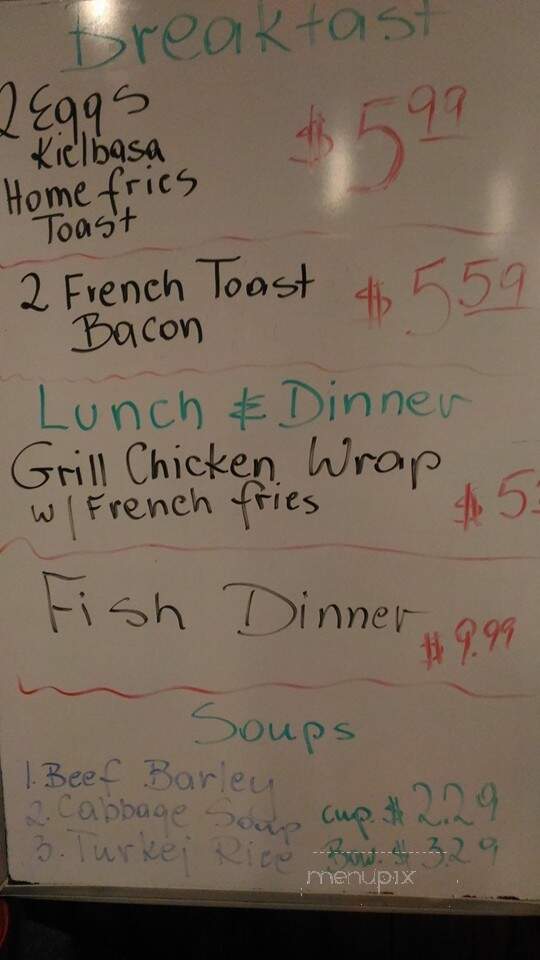 Breakfast
2 Eggs $5.99
Kielbasa
Home fries
Toast
2 French Toast $5.59
Bacon
Lunch & Dinner
Grill Chicken Wrap
w/ French fries $5
Fish Dinner $9.99
Soups
1. Beef Barley
2. Cabbage Soup cup. $2.29
3. Turkej Rice Bow. $3.29
menupix